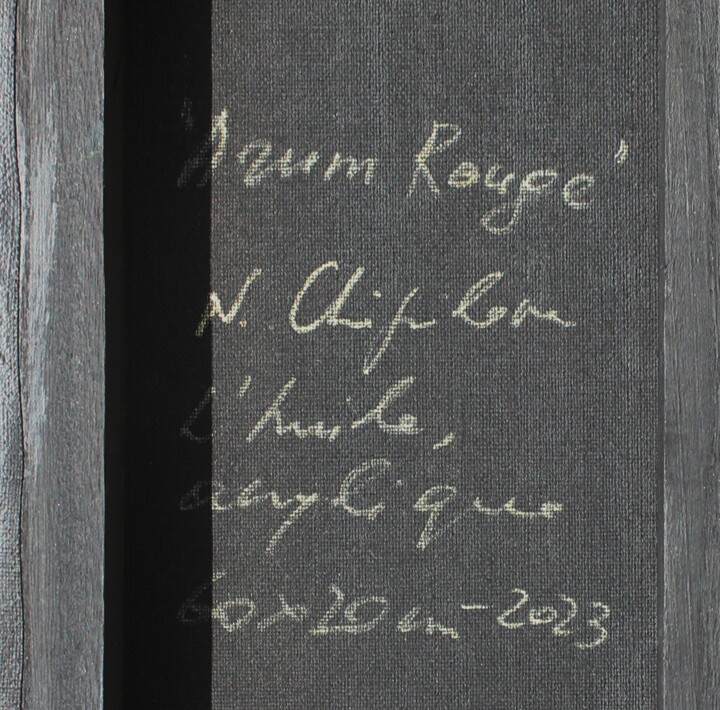 "Arum Rouge"
N. Chipilova
L'huile,
acrylique
60x20 cm - 2023